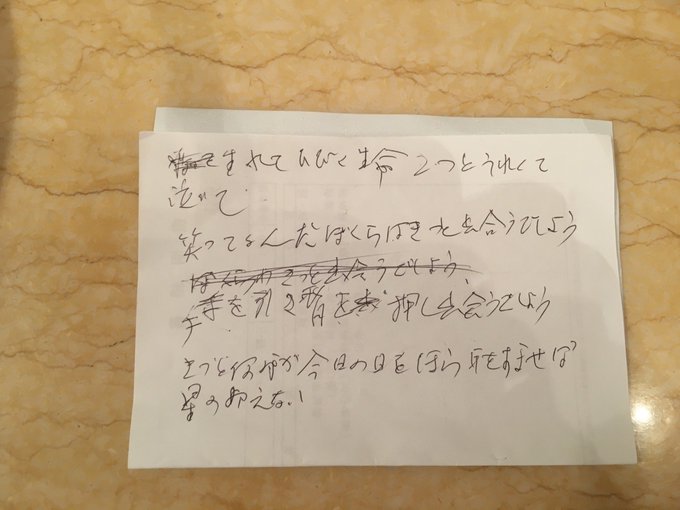 生れてひびく生命2つとうれくて
泣いて
笑ってとんだぼくらはきっと出会うでしょう
ぼくらはきっと出会うでしょう
手を引き背を押し出会うでしょう
今日の日をほら耳をすませば
星の
えない